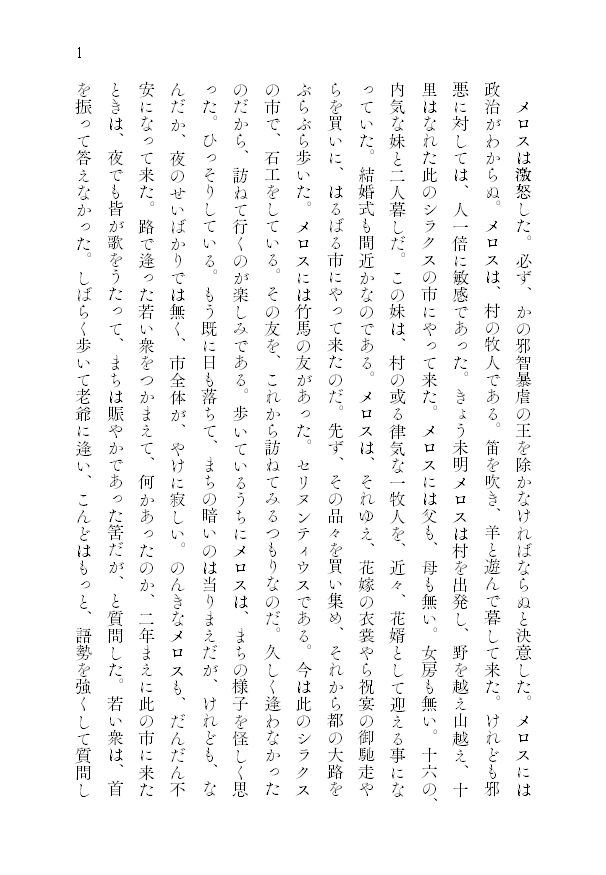 1
　メロスは激怒した。必ず、かの邪智暴虐の王を除かなければならぬと決意した。メロスには
政治がわからぬ。メロスは、村の牧人である。笛を吹き、羊と遊んで暮して来た。けれども邪
悪に対しては、人一倍に敏感であった。きょう未明メロスは村を出発し、野を越え山越え、十
里はなれた此のシラクスの市にやって来た。メロスには父も、母も無い。女房も無い。十六の、
内気な妹と二人暮しだ。この妹は、村の或る律気な一牧人を、近々、花婿として迎える事にな
っていた。結婚式も間近かなのである。メロスは、それゆえ、花嫁の衣裳やら祝宴の御馳走や
らを買いに、はるばる市にやって来たのだ。先ず、その品々を買い集め、それから都の大路を
ぶらぶら歩いた。メロスには竹馬の友があった。セリヌンティウスである。今は此のシラクス
の市で、石工をしている。その友を、これから訪ねてみるつもりなのだ。久しく逢わなかった
のだから、訪ねて行くのが楽しみである。歩いているうちにメロスは、まちの様子を怪しく思
った。ひっそりしている。もう既に日も落ちて、まちの暗いのは当りまえだが、けれども、な
んだか、夜のせいばかりでは無く、市全体が、やけに寂しい。のんきなメロスも、だんだん不
安になって来た。路で逢った若い衆をつかまえて、何かあったのか、二年まえに此の市に来た
ときは、夜でも皆が歌をうたって、まちは賑やかであった筈だが、と質問した。若い衆は、首
を振って答えなかった。しばらく歩いて老爺に逢い、こんどはもっと、語勢を強くして質問し